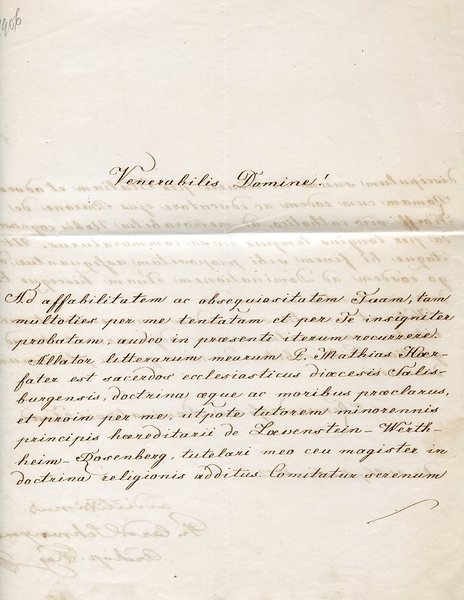 Venerabilis Domine!
Ad affabilitatem ac obsequiositatem Tuam, tam
multoties per me tentatam et per Te insigniter
probatam, audeo in præsenti iterum recurrere.
Allator litterarum mearum P. Mathias Hoer-
fater est sacerdos ecclesiasticus diœcesis Salis-
burgensis, doctrina æque ac moribus præclarus,
et proin per me, utpote tutorem minorennis
principis hæreditarii de Lœvenstein-Werth-
heim-Rosenberg, tutelari meo ceu magister in
doctrina religionis additus. Comitatur serenum